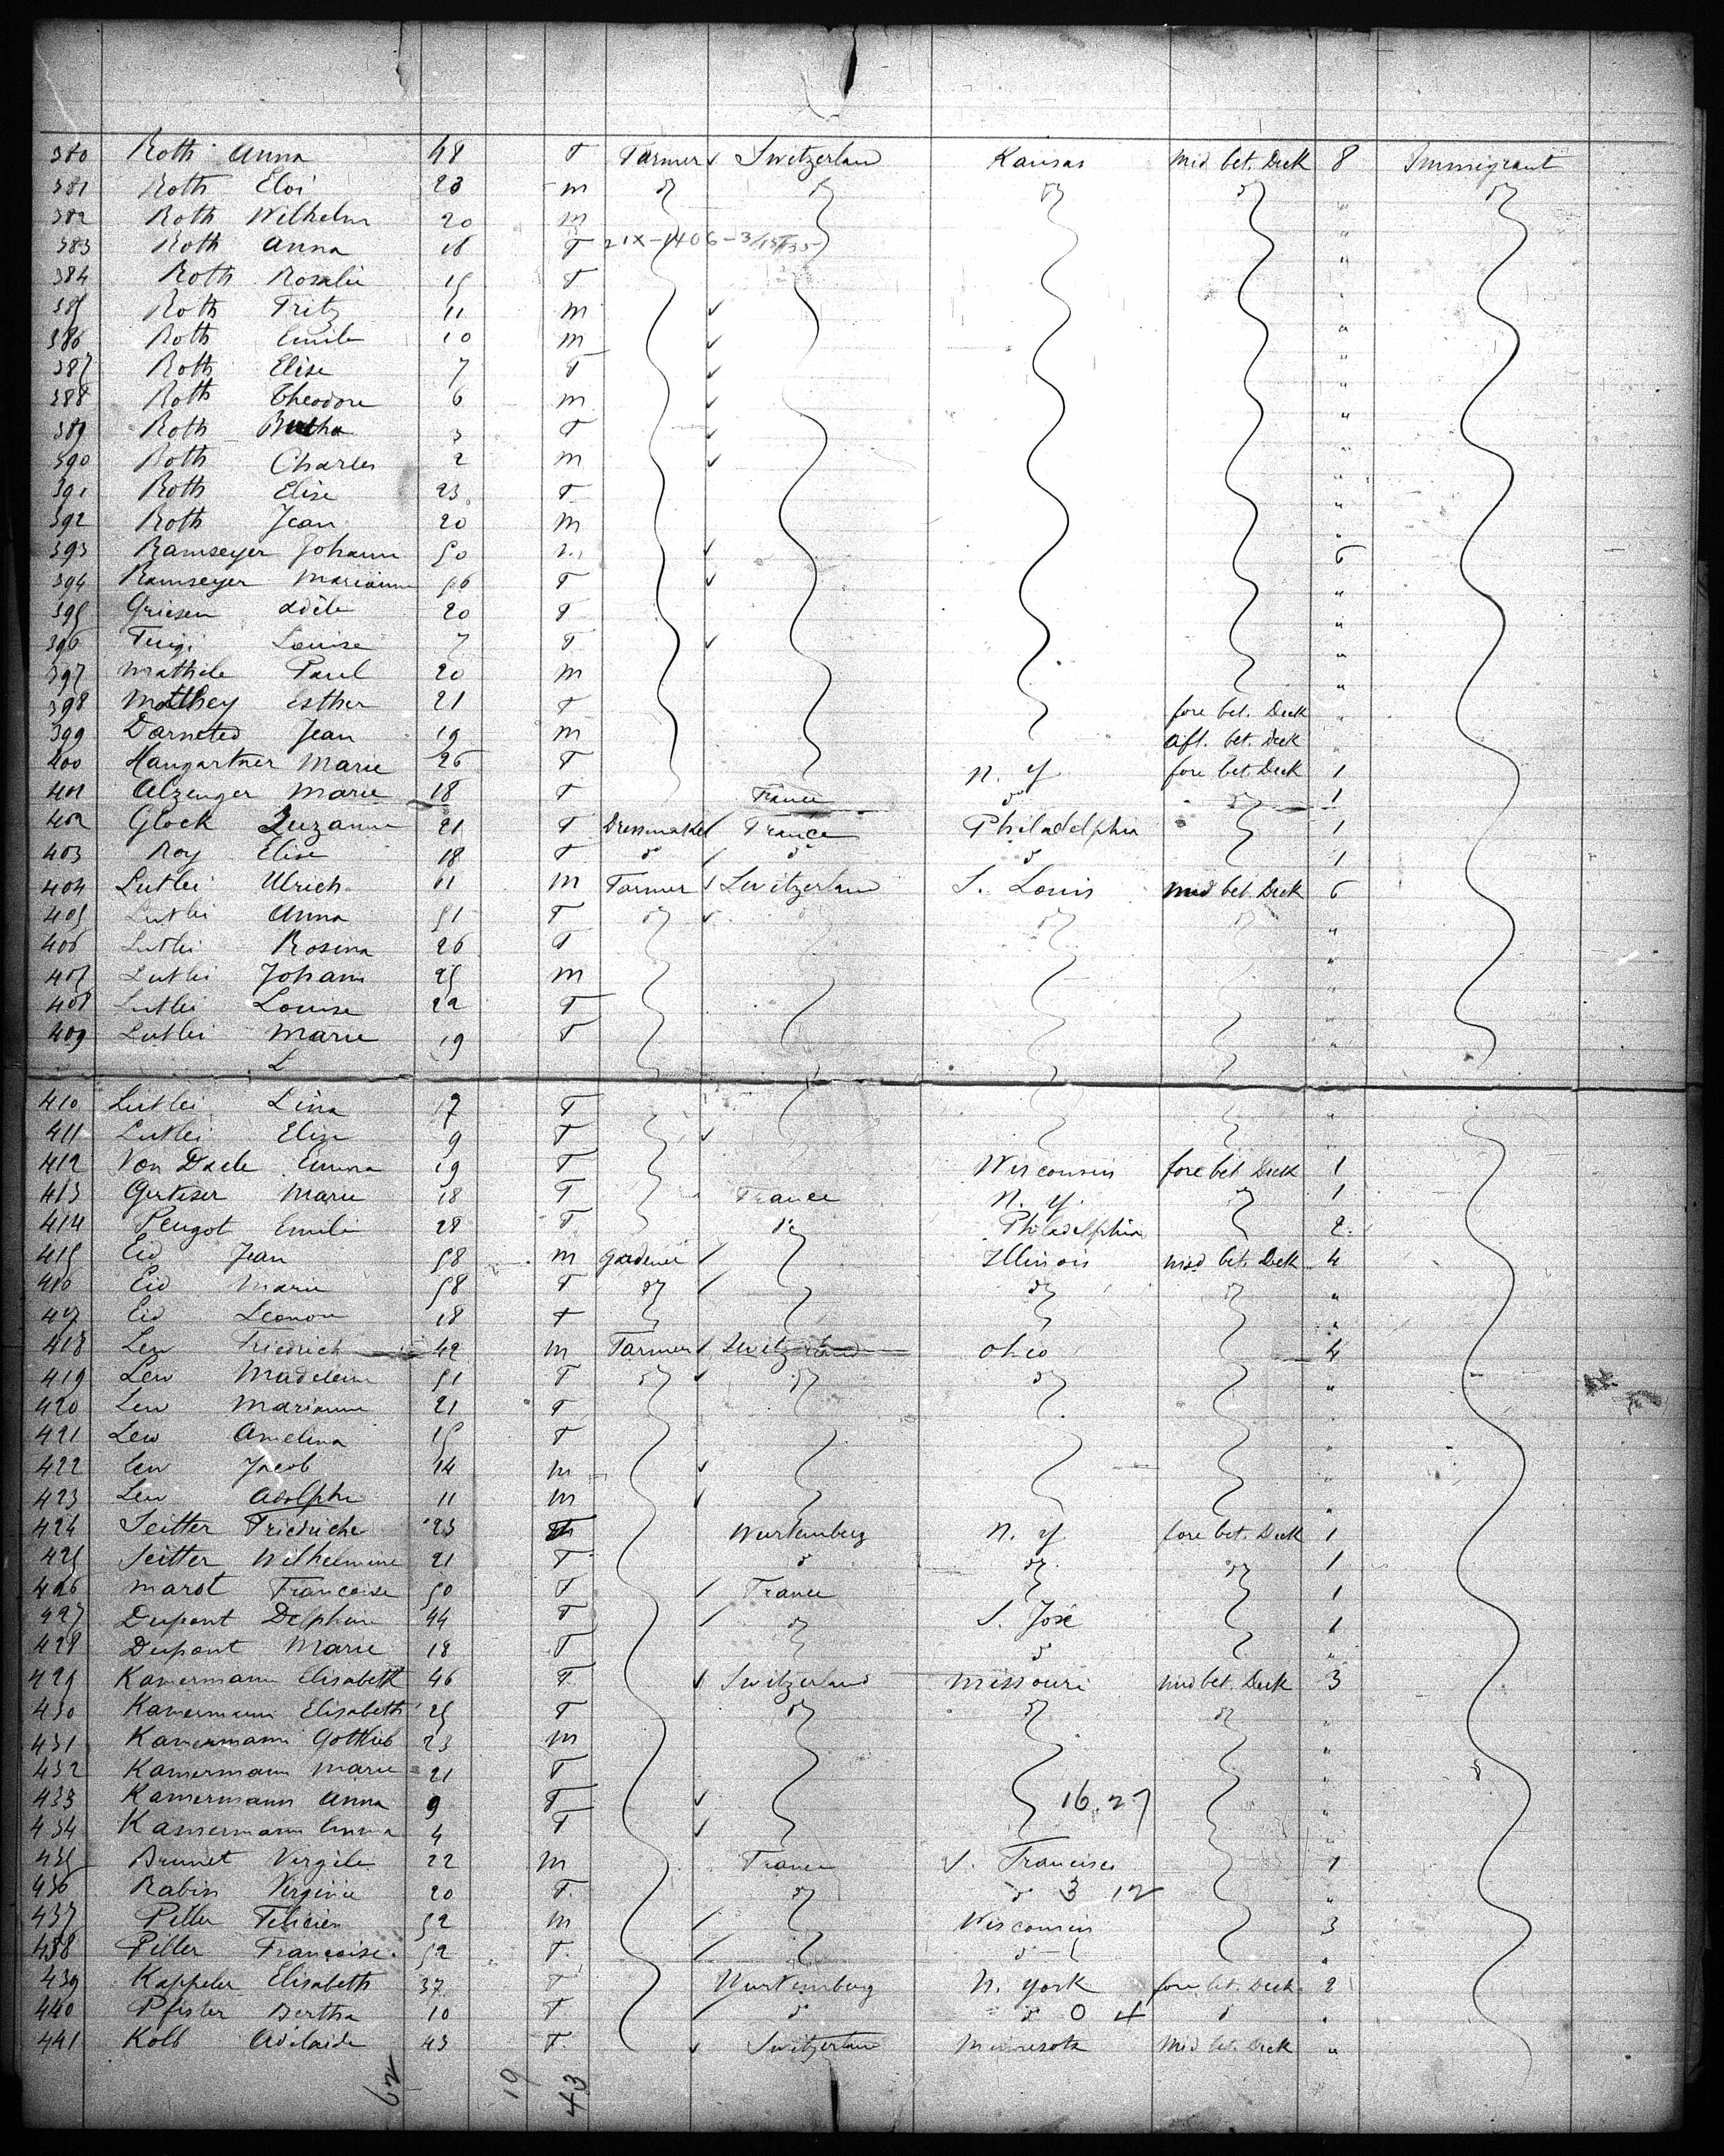 380 Roth Anna 48 F Farmer ✓ Switzerland Kansas Mid bet. Deck 8 Immigrant
381 Roth Eloi 23 m do do do do " do
382 Roth Wilhelm 20 m "
383 Roth Anna 18 F 21X-1406-3/15/35 "
384 Roth Rosalie 15 F "
385 Roth Fritz 11 m ✓ "
386 Roth Emile 10 m ✓ "
387 Roth Elise 7 F ✓ "
388 Roth Theodore 6 m ✓ "
389 Roth Bertha 3 F ✓ "
390 Roth Charles 2 m ✓ "
391 Roth Elise 23 F "
392 Roth Jean 20 m "
393 Ramseyer Johann 50 ✓ 6
394 Ramseyer Mariann 56 F ✓ "
395 Griesen Adèle 20 F "
396 Louise 7 F ✓ "
397 Mathile Paul 20 m "
398 Matthey Esther 21 F fore bet. Deck "
399 Darneted Jean 19 m Aft. bet. Deck "
400 Haugartner Marie 26 F N. Y. fore bet. Deck 1
401 Alzenger Marie 18 F France do do 1
402 Glock Suzanne 21 F Dressmaker France Philadelphia 1
403 Roy Elise 18 F do do do 1
404 Lutlei Ulrich 61 m Farmer ✓ Switzerland S. Louis Mid bet. Deck 6
405 Lutlei Anna 51 F do ✓ do do "
406 Lutlei Rosina 26 F "
407 Lutlei Johann 25 m "
408 Lutlei Louise 22 F "
409 Lutlei Marie 19 F "
L
410 Lutlei Lina 17 F "
411 Lutlei Elise 9 F ✓ "
412 Von Daele Emma 19 F Wisconsin fore bet. Deck 1
413 Gutzser Marie 18 F France N. Y. do 1
414 Peugot Emilie 28 F do Philadelphia 2
415 Eid Jean 58 m Gardener Illinois mid bet. Deck 4
416 Eid Marie 58 F do do do "
417 Eid Leonor 18 F "
418 Lew Friedrich 42 m Farmer ✓ Switzerland Ohio 4
419 Lew Madelein 51 F do ✓ do do "
420 Lew Mariann 21 F "
421 Lew Amelina 15 F "
422 Lew Jacob 14 m ✓ "
423 Lew Adolphe 11 m ✓ "
424 Seitter Friedriche 23 Wurtemberg N. Y. fore bet. Deck 1
425 Seitter Wilhelmine 21 F do do do 1
426 Marot Francoise 50 F France 1
427 Dupont Delphine 44 F do S. José 1
428 Dupont Marie 18 F do "
429 Kamermann Elisabeth 46 F ✓ Switzerland Missouri mid bet. Deck 3
430 Kamermann Elisabeth 25 F do do do "
431 Kamermann Gottlieb 23 m "
432 Kamermann Marie 21 F "
433 Kamermann Anna 9 F ✓ 16.27 "
434 Kamermann Emma 4 F ✓ "
435 Brunet Virgile 22 m France S. Francisco 1
436 Rabin Virginie 20 F do do 3 12 "
437 Piller Felicien 52 m Wisconsin 3
438 Piller Francoise 52 F do "
439 Kappeler Elisabeth 37 F Wurtemberg N. York fore bet. Deck 2
440 Pfister Bertha 10 F do do 0 4 do "
441 Kolb Adelaide 43 F ✓ Switzerland Minnesota Mid bet. Deck "
62 19 43